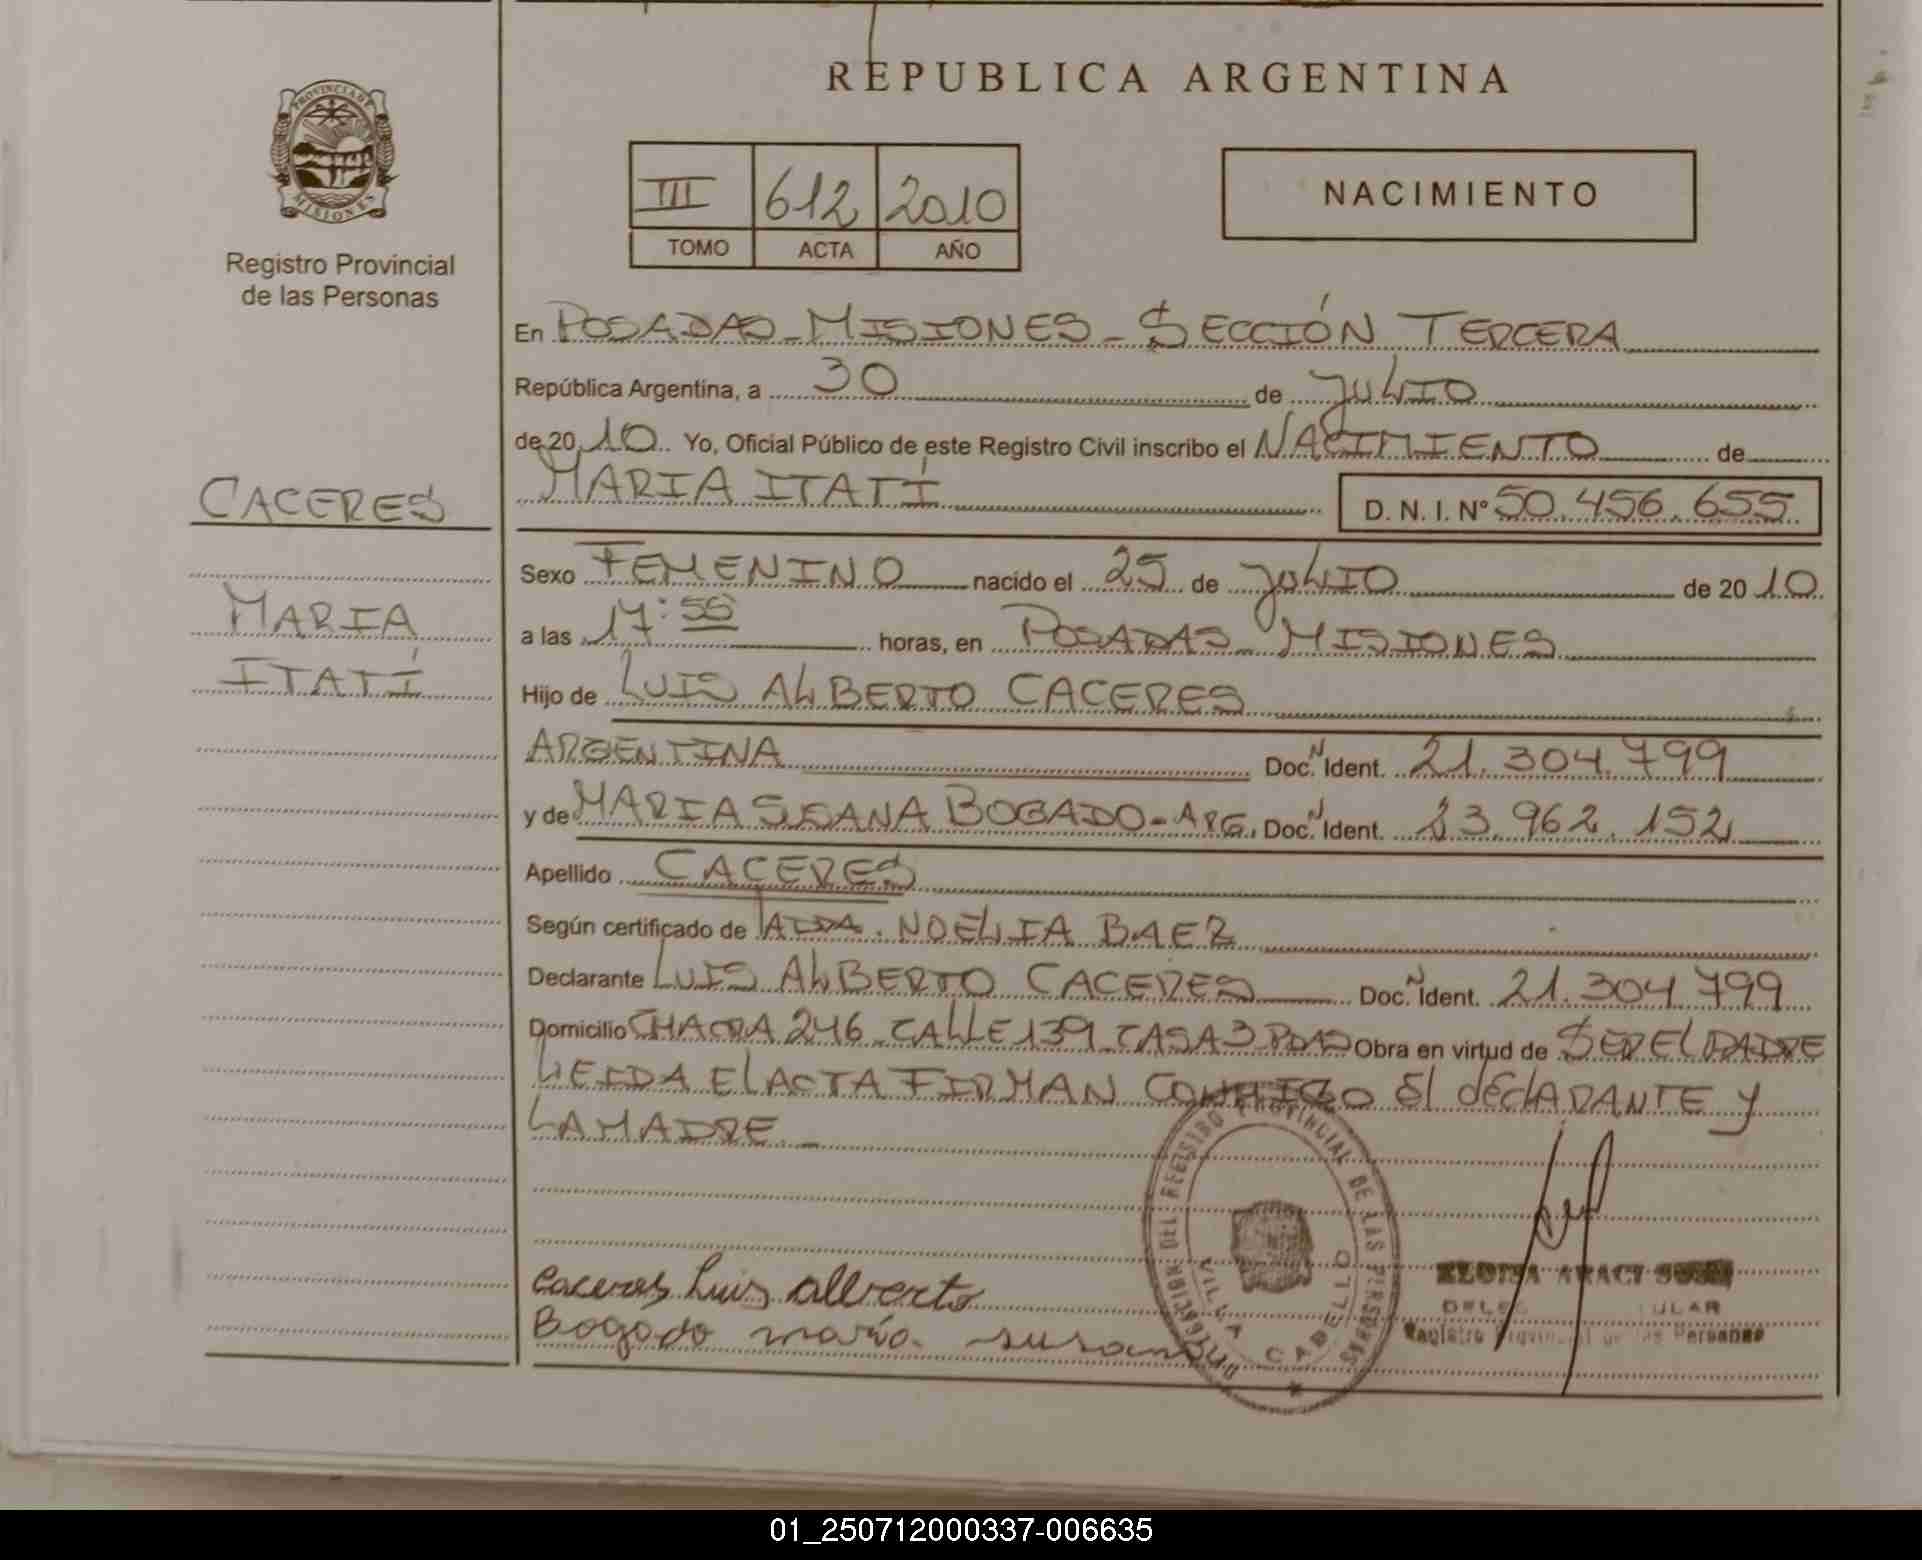 REPUBLICA ARGENTINA
PROVINCIA DE
MISIONES
Registro Provincial
de las Personas
III 612 2010
TOMO ACTA AÑO
NACIMIENTO
En POSADAS - MISIONES - SECCIÓN TERCERA
República Argentina, a 30 de JULIO
de 20 10 Yo, Oficial Público de este Registro Civil inscribo el NACIMIENTO de
MARIA ITATÍ D. N. I. N° 50.456.655
CACERES
MARIA
ITATÍ
Sexo FEMENINO nacido el 25 de JULIO de 20 10
a las 17:55 horas, en POSADAS - MISIONES
Hijo de LUIS ALBERTO CACERES
ARGENTINA Doc. N Ident. 21.304.799
y de MARIA SUSANA BOGADO - ARG. Doc. N Ident. 23.962.152
Apellido CACERES
Según certificado de AIDA NOELIA BAEZ
Declarante LUIS ALBERTO CACERES Doc. N Ident. 21.304.799
Domicilio CHACRA 246 - CALLE 139 - CASA 3 PDAS Obra en virtud de SER EL PADRE
LEIDA EL ACTA FIRMAN CONMIGO El dEClARANTE y
LA MADRE -
Caceres Luis alberto
Bogado maria susana
DELEGACION DEL REGISTRO PROVINCIAL DE LAS PERSONAS
VILLA CABELLO
ELOISA ARACI
Registro Provincial de las Personas
01_250712000337-006635